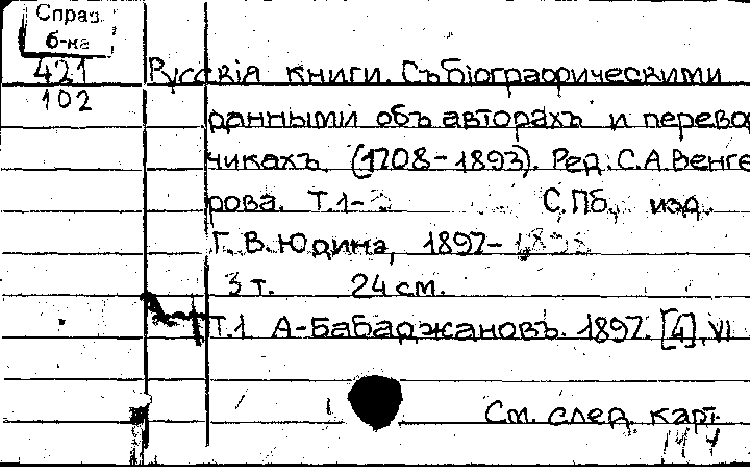 Справ
б-ка
421
102
Русскія книги. Съ біографическими
данными объ авторахъ и перево
чикахъ. (1708-1893). Ред. С.А. Венге
рова. Т.1-3 С.Пб., изд.
Г. В. Юдина, 1897-
3 т. 24 см.
Т.1 А-Бабаджановъ. 1897. [4], VI
См. след. карт.